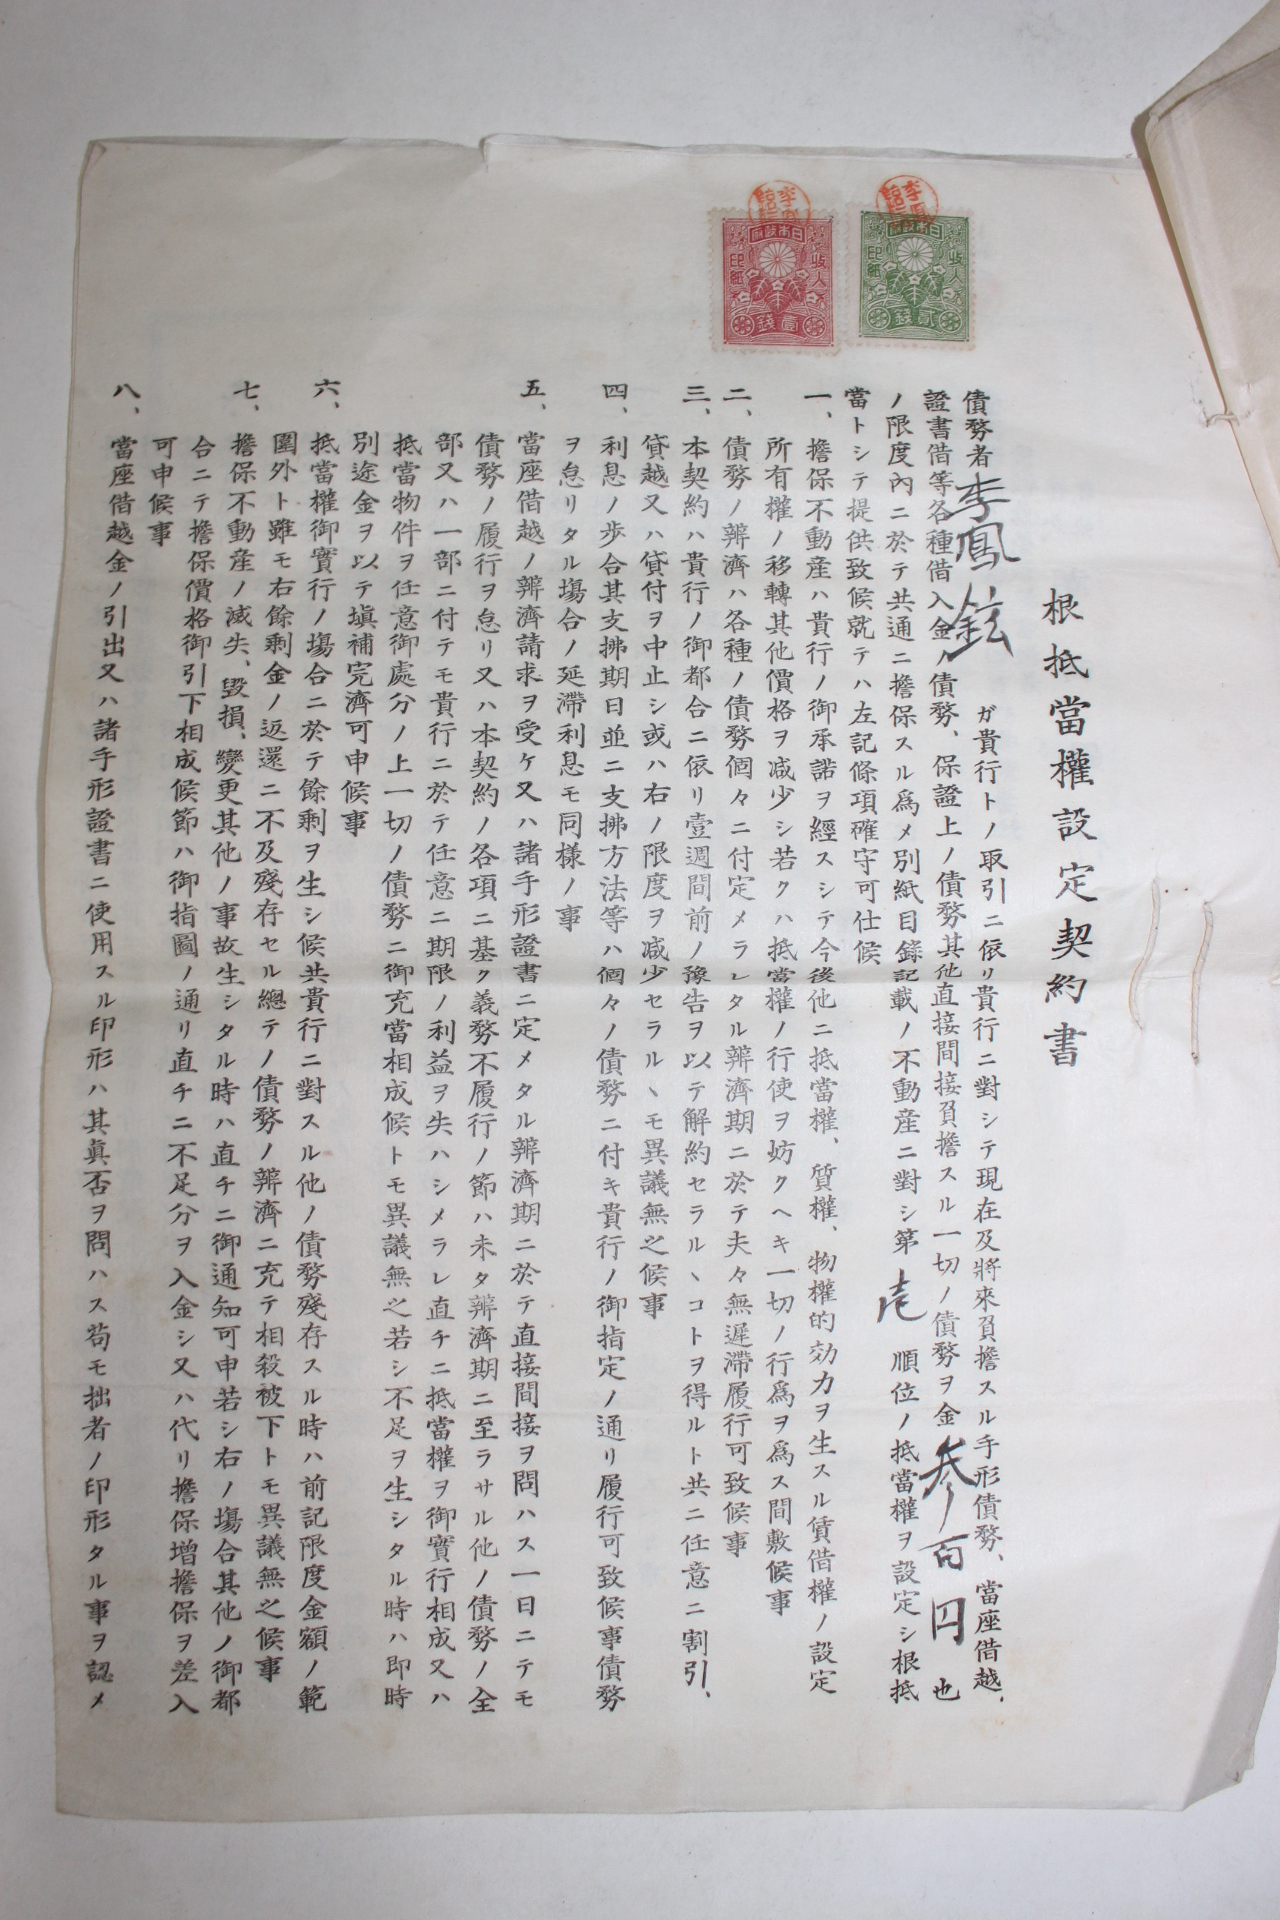 根抵當權設定契約書
債務者李鳳鉉ガ貴行トノ取引ニ依リ貴行ニ對シテ現在及將來負擔スル手形債務、當座借越、
證書借等各種借入金ノ債務、保證上ノ債務其他直接間接負擔スル一切ノ債務ヲ金参百円也
ノ限度內ニ於テ共通ニ擔保スル爲メ別紙目錄記載ノ不動產ニ對シ第壱順位ノ抵當權ヲ設定シ根抵
當トシテ提供致候就テハ左記條項確守可仕候
一、擔保不動產ハ貴行ノ御承諾ヲ經スシテ今後他ニ抵當權、質權、物權的効力ヲ生スル賃借權ノ設定
所有權ノ移轉其他價格ヲ减少シ若クハ抵當權ノ行使ヲ妨クヘキ一切ノ行爲ヲ爲ス間敷候事
二、債務ノ辨濟ハ各種ノ債務個々ニ付定メラレタル辨濟期ニ於テ夫々無遲滯履行可致候事
三、本契約ハ貴行ノ御都合ニ依リ壹週間前ノ豫告ヲ以テ解約セラルヽコトヲ得ルト共ニ任意ニ割引、
貸越又ハ貸付ヲ中止シ或ハ右ノ限度ヲ减少セラルヽモ異議無之候事
四、利息ノ步合其支拂期日並ニ支拂方法等ハ個々ノ債務ニ付キ貴行ノ御指定ノ通リ履行可致候事債務
ヲ怠リタル塲合ノ延滯利息モ同樣ノ事
五、當座借越ノ辨濟請求ヲ受ケ又ハ諸手形證書ニ定メタル辨濟期ニ於テ直接間接ヲ問ハス一日ニテモ
債務ノ履行ヲ怠リ又ハ本契約ノ各項ニ基ク義務不履行ノ節ハ未タ辨濟期ニ至ラサル他ノ債務ノ全
部又ハ一部ニ付テモ貴行ニ於テ任意ニ期限ノ利益ヲ失ハシメラレ直チニ抵當權ヲ御實行相成又ハ
抵當物件ヲ任意御處分ノ上一切ノ債務ニ御充當相成候トモ異議無之若シ不足ヲ生シタル時ハ卽時
別途金ヲ以テ塡補完濟可申候事
六、抵當權御實行ノ塲合ニ於テ餘剩ヲ生シ候共貴行ニ對スル他ノ債務殘存スル時ハ前記限度金額ノ範
圍外ト雖モ右餘剩金ノ返還ニ不及殘存セル總テノ債務ノ辨濟ニ充テ相殺被下トモ異議無之候事
七、擔保不動產ノ滅失、毀損、變更其他ノ事故生シタル時ハ直チニ御通知可申若シ右ノ塲合其他ノ御都
合ニテ擔保價格御引下相成候節ハ御指圖ノ通リ直チニ不足分ヲ入金シ又ハ代リ擔保增擔保ヲ差入
可申候事
八、當座借越金ノ引出又ハ諸手形證書ニ使用スル印形ハ其眞否ヲ問ハス苟モ拙者ノ印形タル事ヲ認メ
日本政府
收入
印紙
貳錢
日本政府
收入
印紙
壹錢